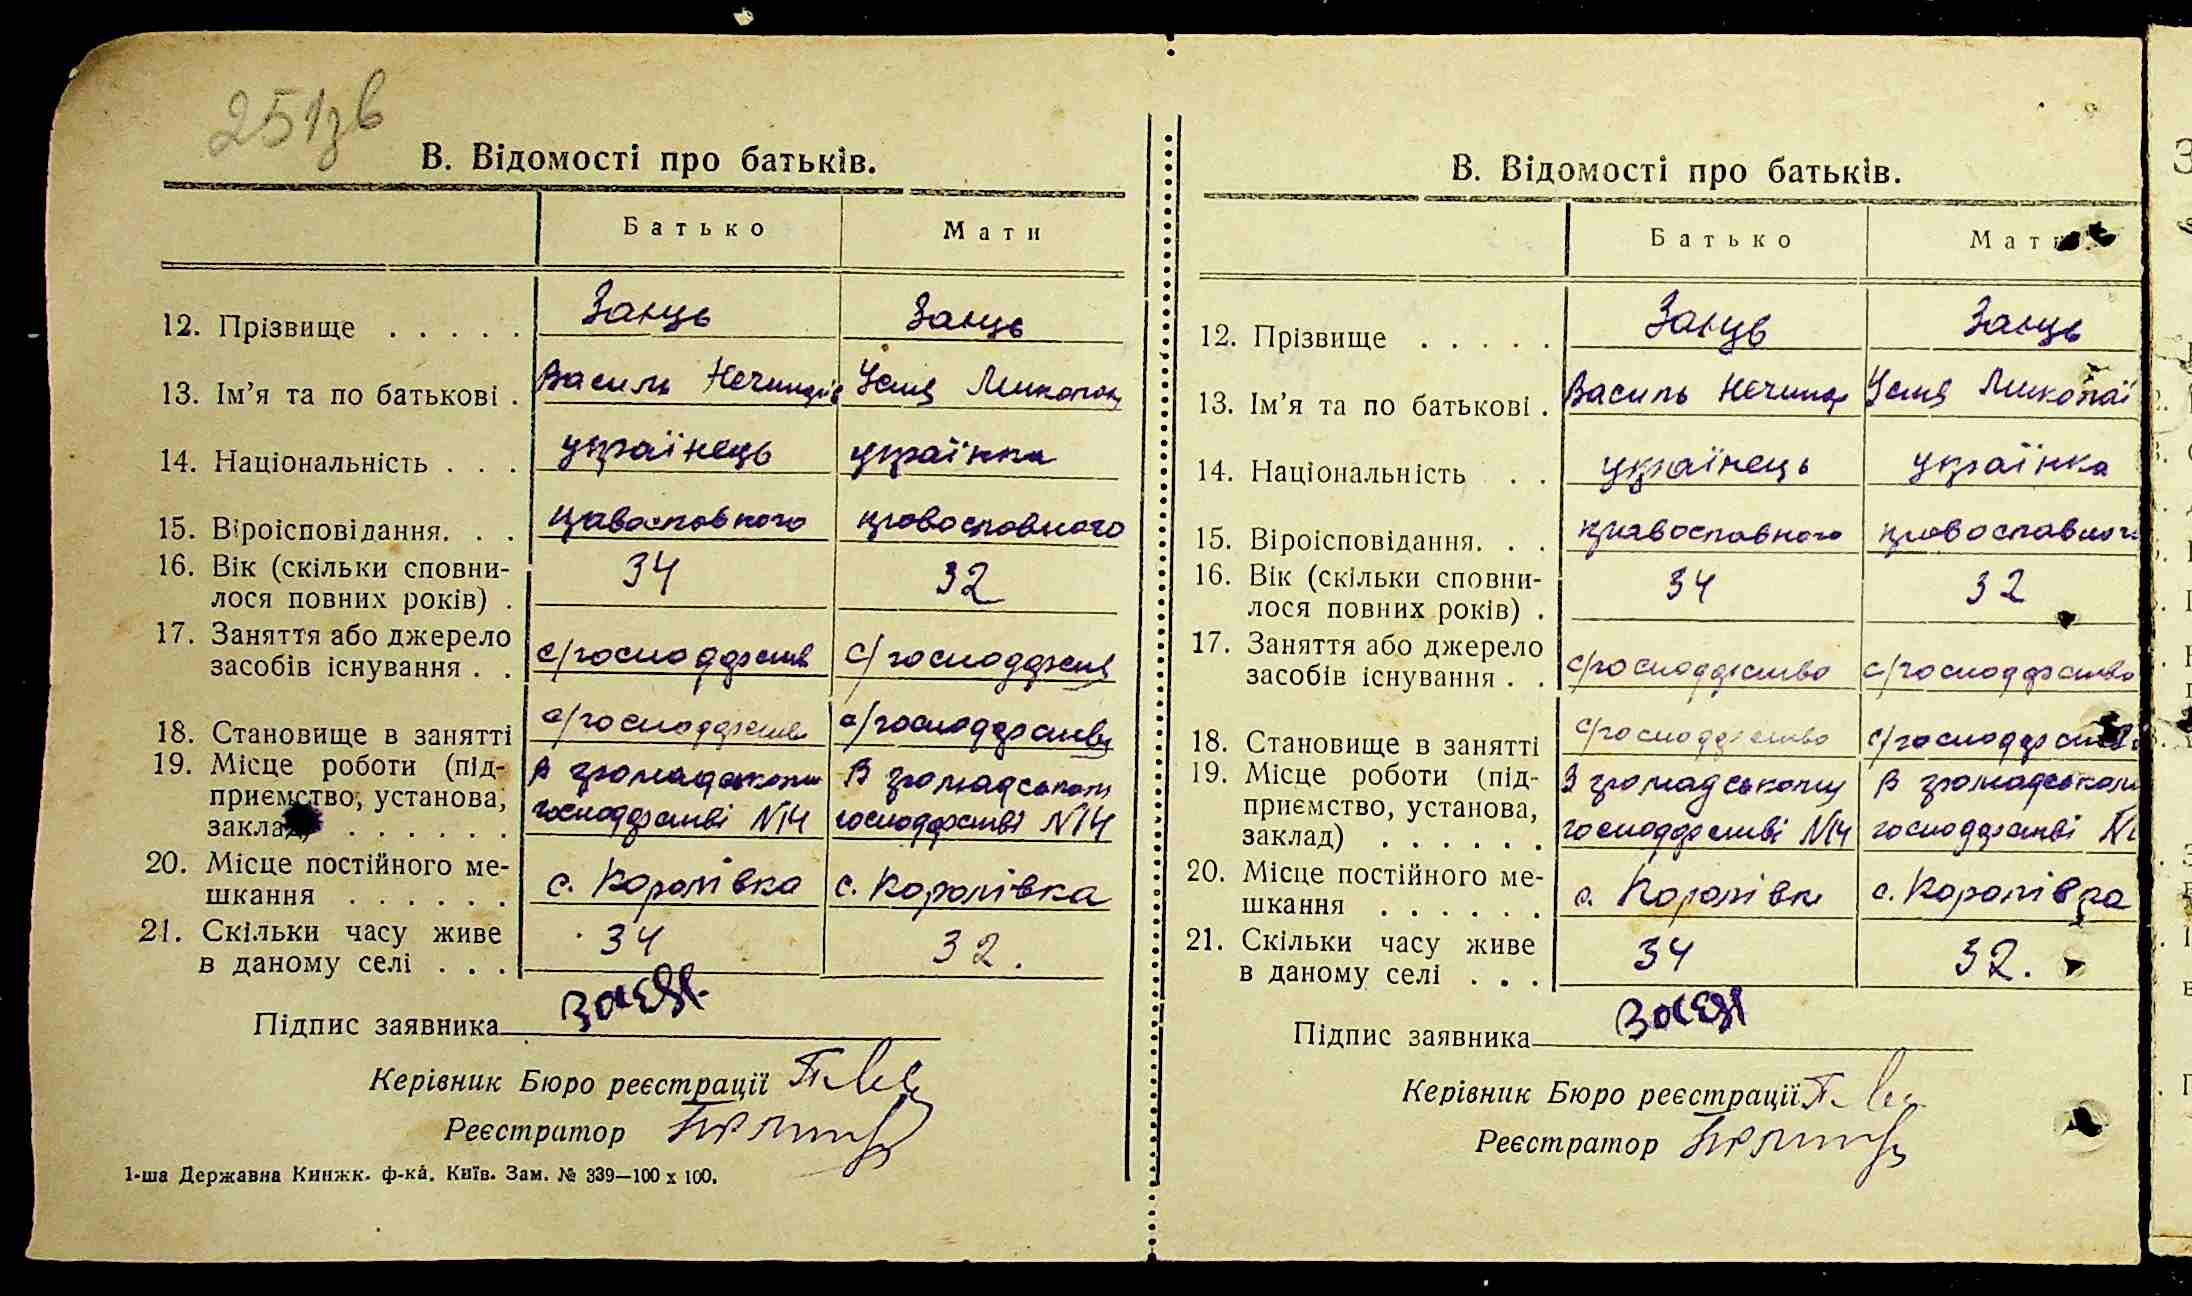 251зв
В. Відомості про батьків.
Батько Мати
12. Прізвище . . . . . Заяць Заяць
13. Ім’я та по батькові . Василь Мико
14. Національність . . . українець українка
15. Віроісповідання. . . православного
16. Вік (скільки сповни-
лося повних років) . 34 32
17. Заняття або джерело
засобів існування . . с/господарств с/господарств
18. Становище в занятті с/господарств с/господарству
19. Місце роботи (під- В громадському В громадському
приємство, установа, господарстві №14 господарстві №14
заклад) . . . . . .
20. Місце постійного ме-
шкання . . . . . . с. Королівка с. Королівка
21. Скільки часу живе
в даному селі . . . 34 32.
Підпис заявника Заєць
Керівник Бюро реєстрації
Реєстратор
1-ша Державна Книжк. ф-ка. Київ. Зам. № 339—100 x 100.
В. Відомості про батьків.
Батько Мати
12. Прізвище . . . . . Заяць Заяць
13. Ім’я та по батькові . Василь Миколаї
14. Національність . . українець українка
15. Віроісповідання. . . православного православного
16. Вік (скільки сповни-
лося повних років) . 34 32
17. Заняття або джерело
засобів існування . . с/господарство с/господарство
18. Становище в занятті с/господарство с/господарств
19. Місце роботи (під- В громадському В громадському
приємство, установа, господарстві №14 господарстві №1
заклад) . . . . . .
20. Місце постійного ме-
шкання . . . . . . с. Королівк с. Королівка
21. Скільки часу живе
в даному селі . . . 34 32.
Підпис заявника Заєць
Керівник Бюро реєстрації
Реєстратор